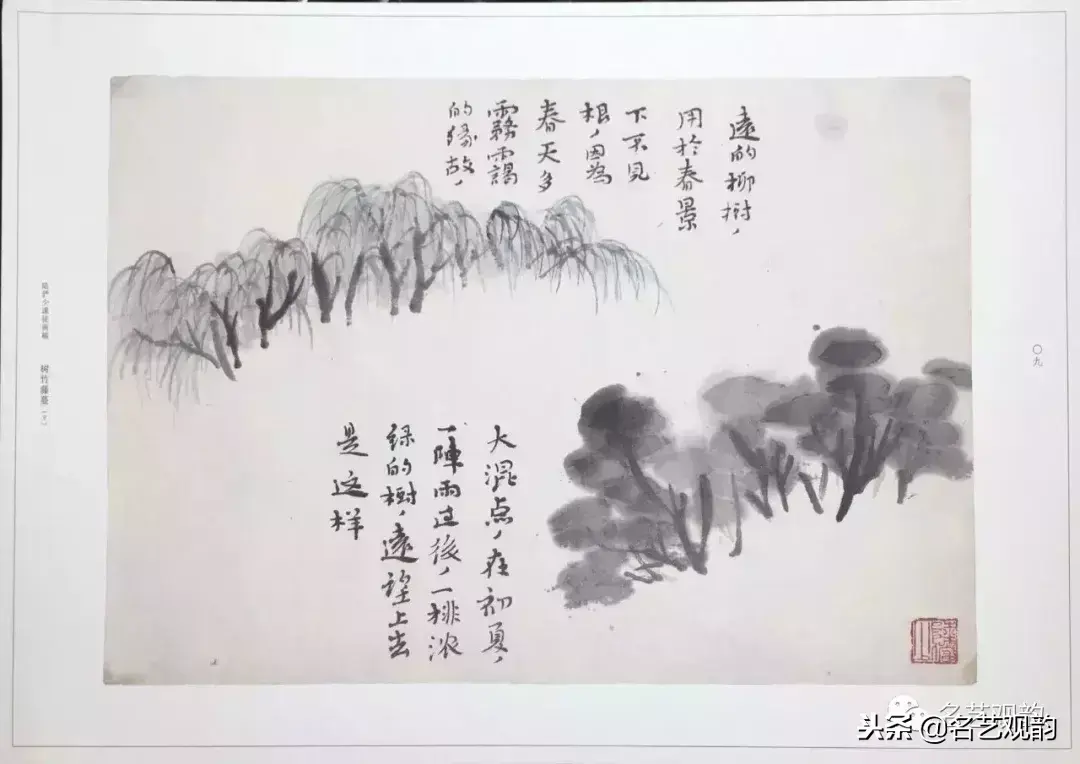 遠的柳樹，
用於春景
下不見
根，因為
春天多
霧靄
的缘故，
大混点，在初夏，
一陣雨过後，一排浓
绿的樹，遠望上去
是这样
树竹藤蔓
〇九
名艺观韵
头条@名艺观韵